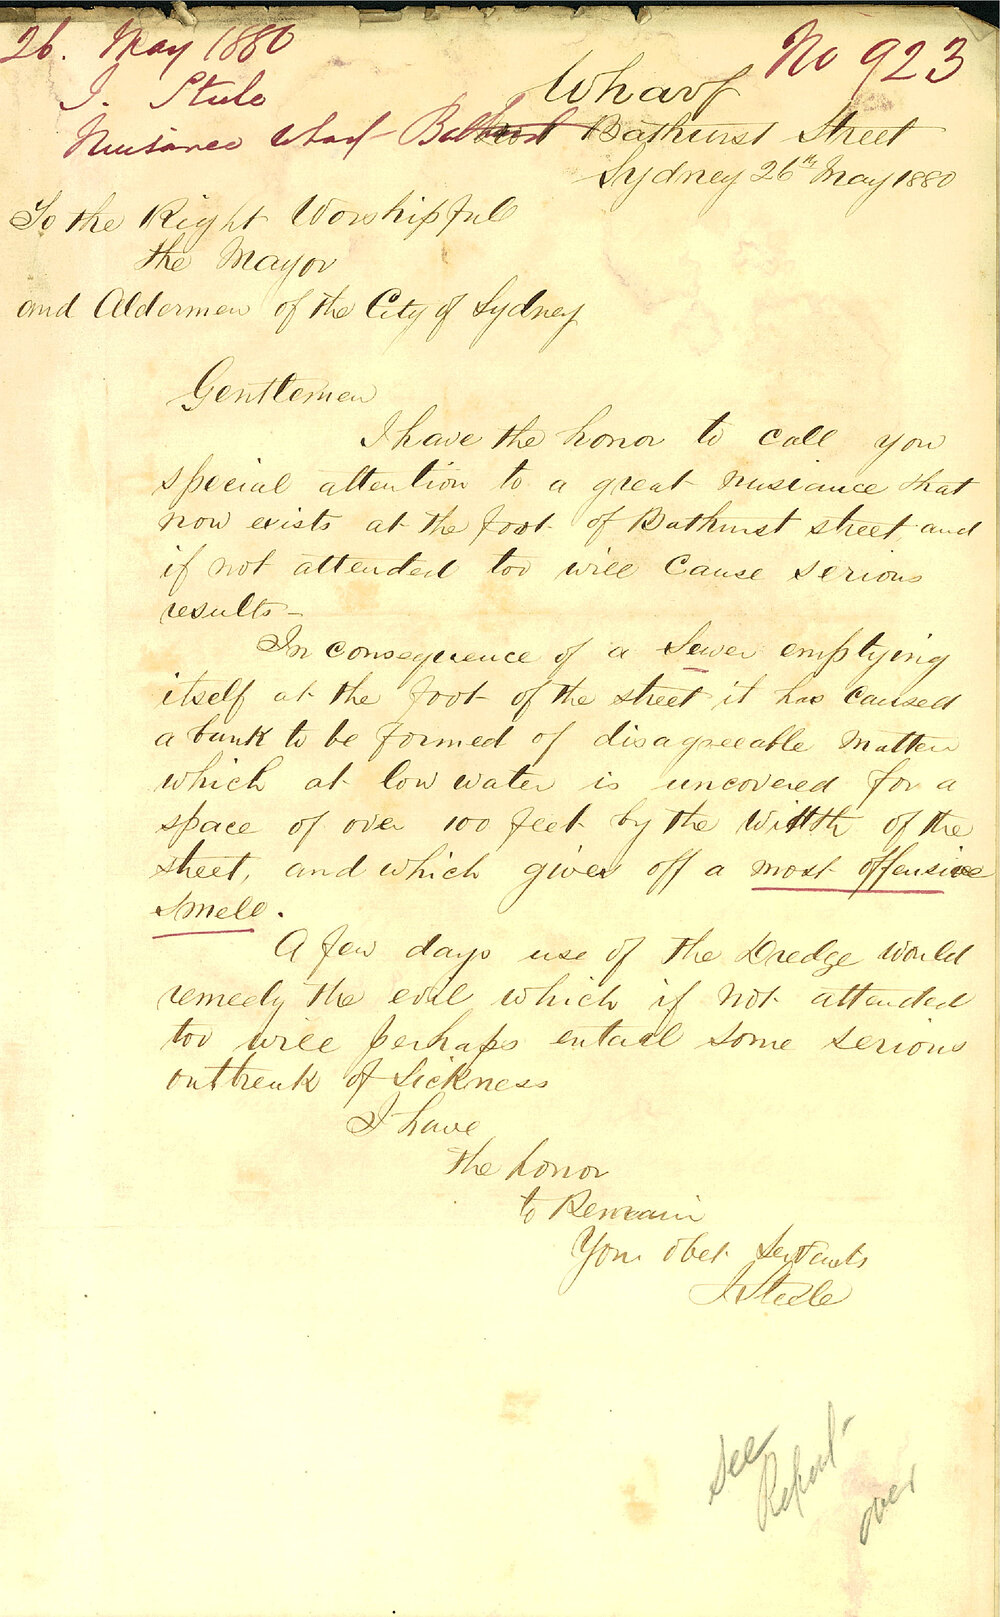 26. May 1880
No 923
J. Steele
Nuisance Wharf Bathurst
Wharf
Bathurst Street
Sydney 26th May 1880
To the Right Worshipful
the Mayor
and Aldermen of the City of Sydney
Gentlemen
I have the honor to call you
special attention to a great nusiance that
now exists at the foot of Bathurst street and
if not attended too will cause serious
results -
In consequence of a Sewer emptying
itself at the foot of the street it has caused
a bank to be formed of disagreeable matter
which at low water is uncovered for a
space of over 100 feet by the width of the
street, and which gives off a most offensive
smell.
A few days use of the Dredge would
remedy the evil which if not attended
too will perhaps entail some serious
outbreak of sickness
I have
the honor
to Remain
Your obet Servants
J Steele
See
Report
over